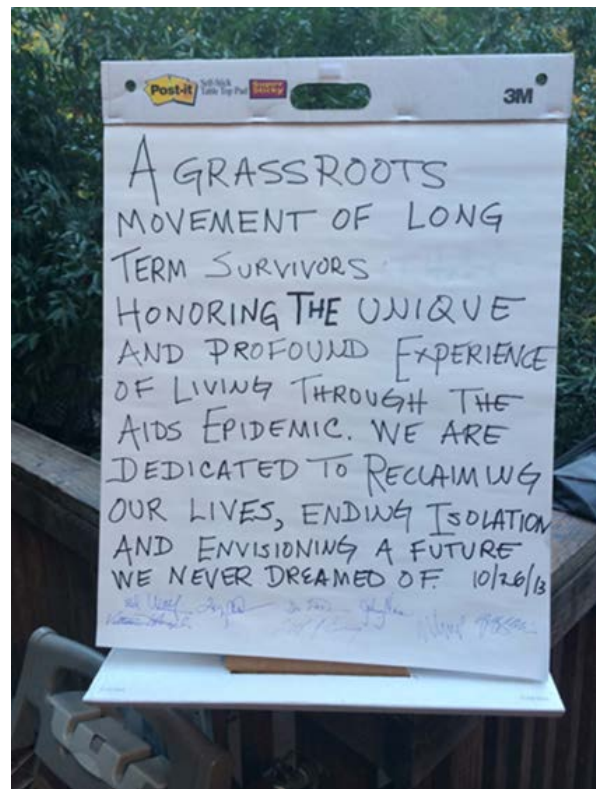 Post-it
Self-Stick
Table Top Pad
Super
Sticky
3M
A GRASSROOTS
MOVEMENT OF LONG
TERM SURVIVORS
HONORING THE UNIQUE
AND PROFOUND EXPERIENCE
OF LIVING THROUGH THE
AIDS EPIDEMIC. WE ARE
DEDICATED TO RECLAIMING
OUR LIVES, ENDING ISOLATION
AND ENVISIONING A FUTURE
WE NEVER DREAMED OF. 10/26/13